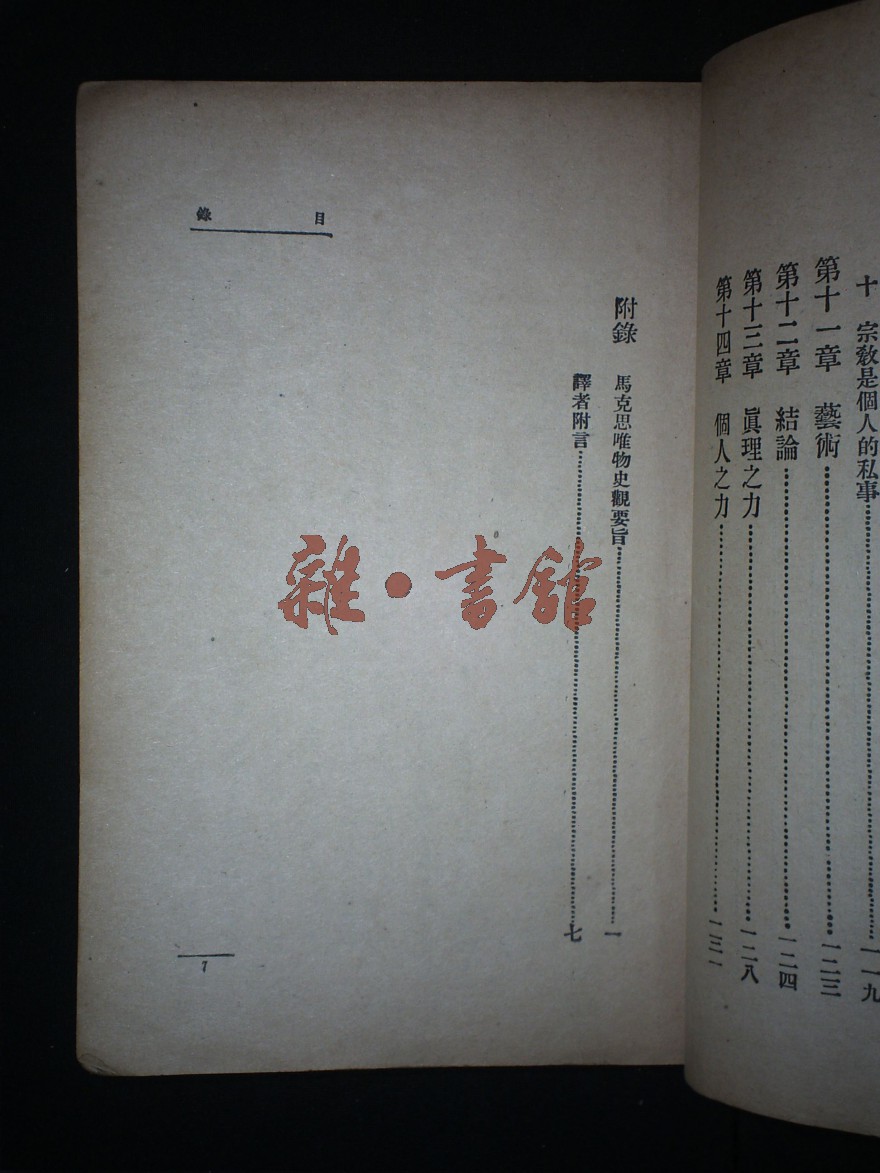 十 宗教是個人的私事……一一九
第十一章 藝術……一二三
第十二章 結論……一二四
第十三章 眞理之力……一二八
第十四章 個人之力……一三一
目錄
附錄 馬克思唯物史觀要旨……一
譯者附言……七
7
雜·書舘